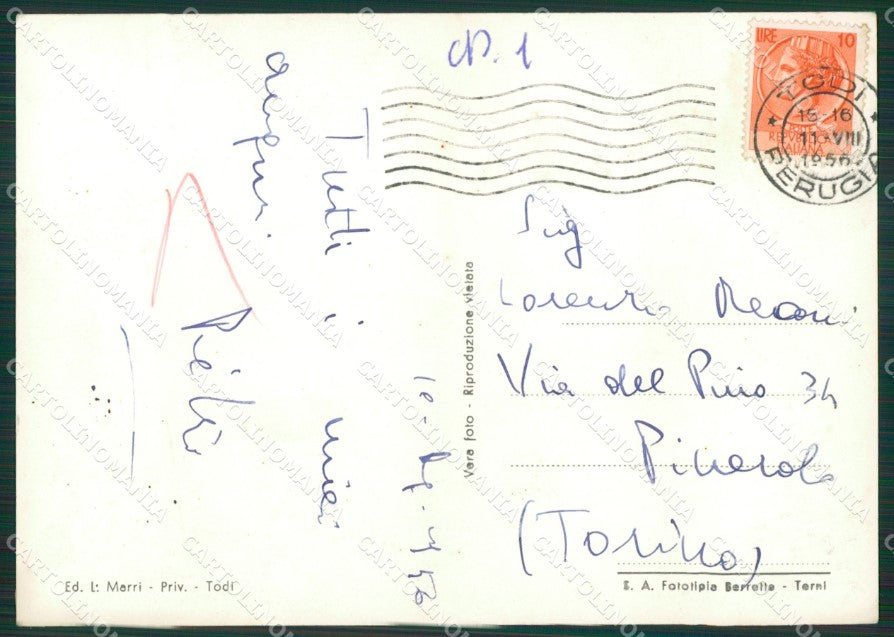 CP. 1
LIRE 10
TODI
15-16
11 VIII
1956
PERUGIA
Tutti i miei
auguri.
Pietro
Sig
Lorenzo
Via del Pino 34
Pinerolo
(Torino)
Vera foto - Riproduzione vietata
Ed. L. Marri - Priv. - Todi
S. A. Fototipia Berretta - Terni
CARTOLINOMANIA